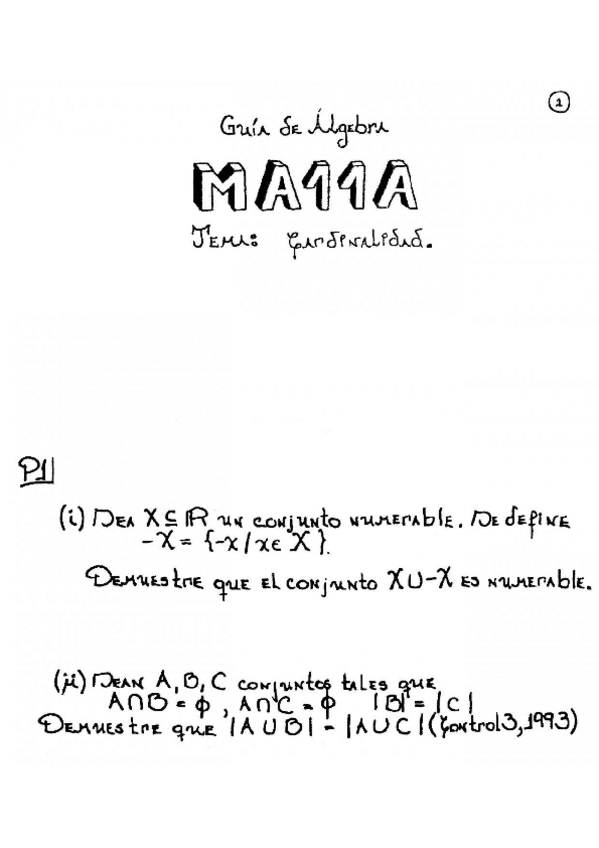 1
Guía de Álgebra
MA11A
Tema: Cardinalidad.
P1
(i) Sea X ⊆ ℝ un conjunto numerable. Se define
-X = {-x / x ∈ X}.
Demuestre que el conjunto X ∪ -X es numerable.
(ii) Sean A, B, C conjuntos tales que
A ∩ B = ϕ , A ∩ C = ϕ |B| = |C|
Demuestre que |A ∪ B| = |A ∪ C| (Control 3, 1993)